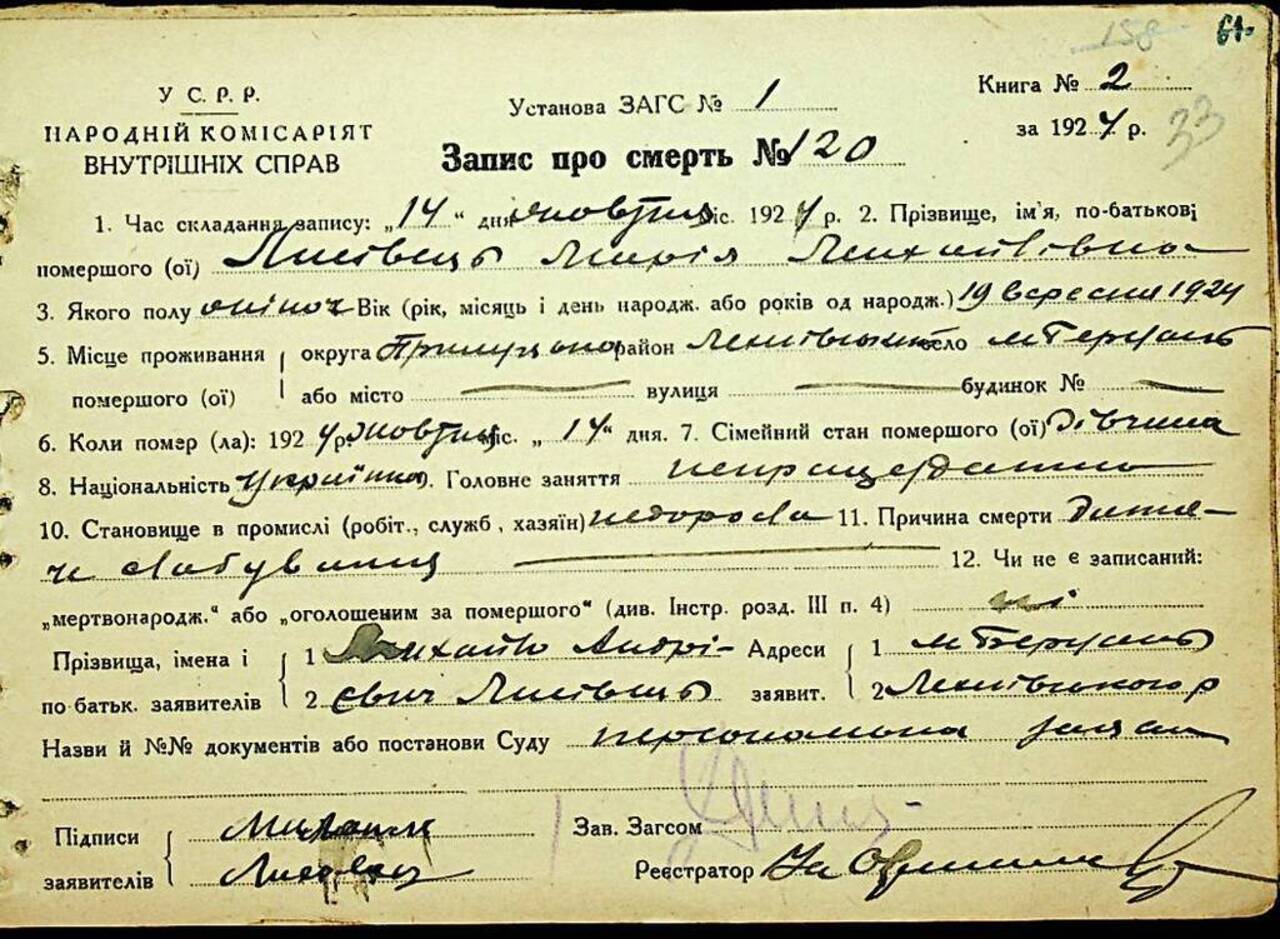 158
61.
У С. Р. Р.
НАРОДНІЙ КОМІСАРІЯТ
ВНУТРІШНІХ СПРАВ
Установа ЗАГС № 1
Книга № 2
за 1924 р.
33
Запис про смерть № 120
1. Час складання запису: „14“ дня жовтня міс. 1924 р. 2. Прізвище, ім'я, по-батькові
помершого (ої) Лисівець Марія Михайлівна
3. Якого полу жіноч Вік (рік, місяць і день народж. або років од народж.) 19 вересня 1924
5. Місце проживання округа Прилуцька район село м
помершого (ої) або місто — вулиця — будинок № —
6. Коли помер (ла): 1924 р. жовтня міс. „14“ дня. 7. Сімейний стан помершого (ої) дівчина
8. Національність Українка 9. Головне заняття
10. Становище в промислі (робіт., служб, хазяїн) недоросла 11. Причина смерти
12. Чи не є записаний:
„мертвонародж.“ або „оголошеним за помершого“ (див. Інстр. розд. III п. 4) ні
Прізвища, імена і 1 Михайло Андрі- Адреси 1 м
по батьк. заявителів 2 євич Лисівець заявит. 2
Назви й №№ документів або постанови Суду персональна заява
Підписи Зав. Загсом
заявителів Лисовец Реєстратор